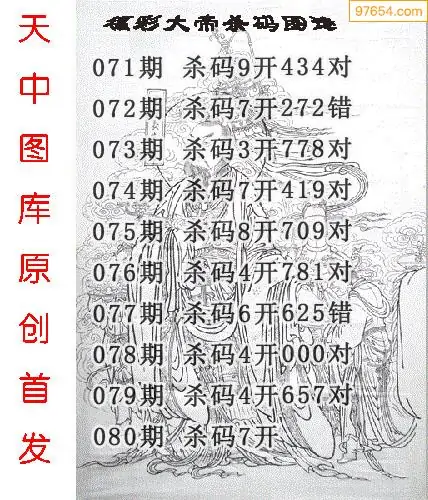 97654.com
福彩大帝杀码图
071期 杀码9开434对
072期 杀码7开272错
073期 杀码3开778对
074期 杀码7开419对
075期 杀码8开709对
076期 杀码4开781对
077期 杀码6开625错
078期 杀码4开000对
079期 杀码4开657对
080期 杀码7开
天中图库原创首发